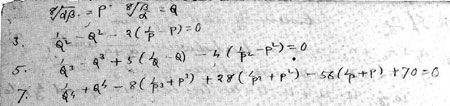 ⁸√αβ = P  ⁸√β/α = Q
3. 1/Q² - Q² - 2(1/P - P) = 0
5. 1/Q³ - Q³ + 5(1/Q - Q) - 4(1/P² - P²) = 0
7. 1/Q⁴ + Q⁴ - 8(1/P³ + P³) + 28(1/P² + P²) - 56(1/P + P) + 70 = 0